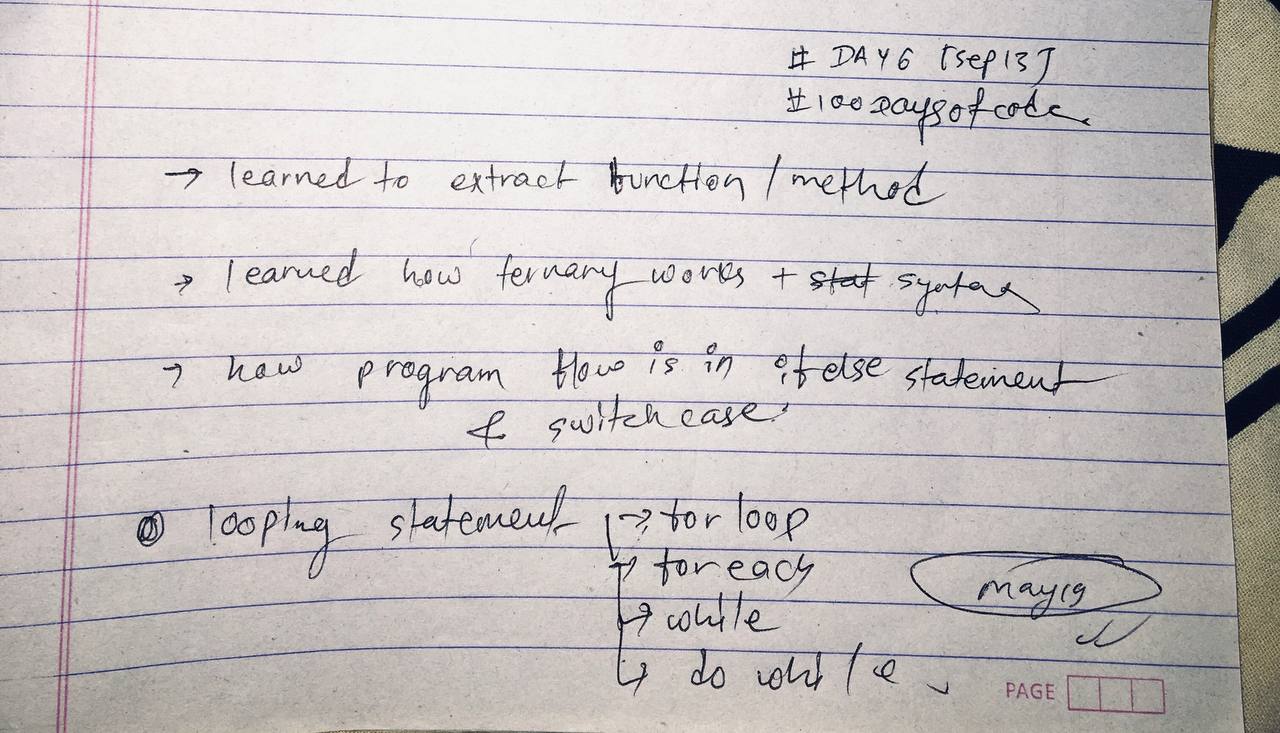 # DAY 6 [sep 13]
#100Daysofcode
→ learned to extract function / method
→ learned how ternary works + stat syntax
→ how program flow is in if else statement
& switch case
looping statement → for loop
→ for each
→ while
→ do while
may 19
PAGE